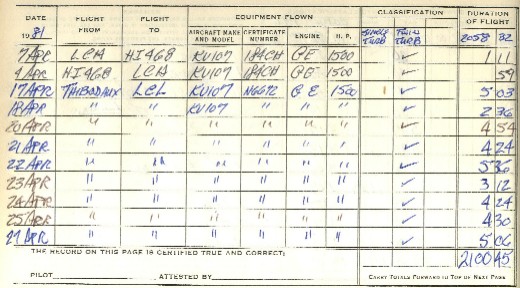 DATE FLIGHT FROM FLIGHT TO EQUIPMENT FLOWN CLASSIFICATION DURATION OF FLIGHT
1981 AIRCRAFT MAKE AND MODEL CERTIFICATE NUMBER ENGINE H. P. SINGLE TURB TWIN TURB 2058 32
7 APR LCH HI468 KV107 184CH GE 1500 ✓ 1 11
9 APR HI468 LCH KV107 184CH GE 1500 ✓ 59
17 APR THIBODAUX LCL KV107 N6672 GE 1500 1 ✓ 5 03
18 APR " " KV107 " " " ✓ 2 36
20 APR " " " " " " ✓ 4 54
21 APR " " " " " " ✓ 4 24
22 APR " " " " " " ✓ 5 36
23 APR " " " " " " ✓ 3 12
24 APR " " " " " " ✓ 4 24
25 APR " " " " " " ✓ 4 30
27 APR " " " " " " ✓ 5 06
THE RECORD ON THIS PAGE IS CERTIFIED TRUE AND CORRECT: 2100 45
PILOT ATTESTED BY CARRY TOTALS FORWARD TO TOP OF NEXT PAGE